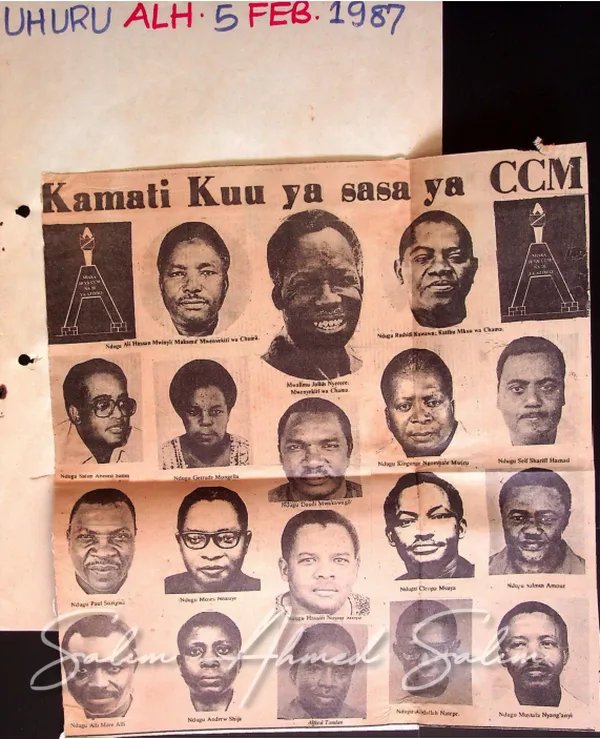 UHURU ALH. 5 FEB. 1987
Kamati Kuu ya sasa ya CCM
Ndugu Ali Hassan Mwinyi Makamu Mwenyekiti wa Chama.
Mwalimu Julius Nyerere:
Mwenyekiti wa Chama.
Ndugu Rashidi Kawawa; Katibu Mkuu wa Chama.
Ndugu Salim Ahmed Salim
Ndugu Getrude Mongella
Ndugu Daudi Mwakawago
Ndugu Kingunge Ngombale Mwiru
Ndugu Seif Shariff Hamad
Ndugu Paul Sozigwa
Ndugu Moses Nnauye
Ndugu Hassan
Ndugu Cleopa Msuya
Ndugu Salmin Amour
Ndugu Ali Mzee Ali
Ndugu Andrew Shija
Alfred Tandau
Ndugu Abdallah Natepe.
Ndugu Mustafa Nyang'anyi
Salim Ahmed Salim